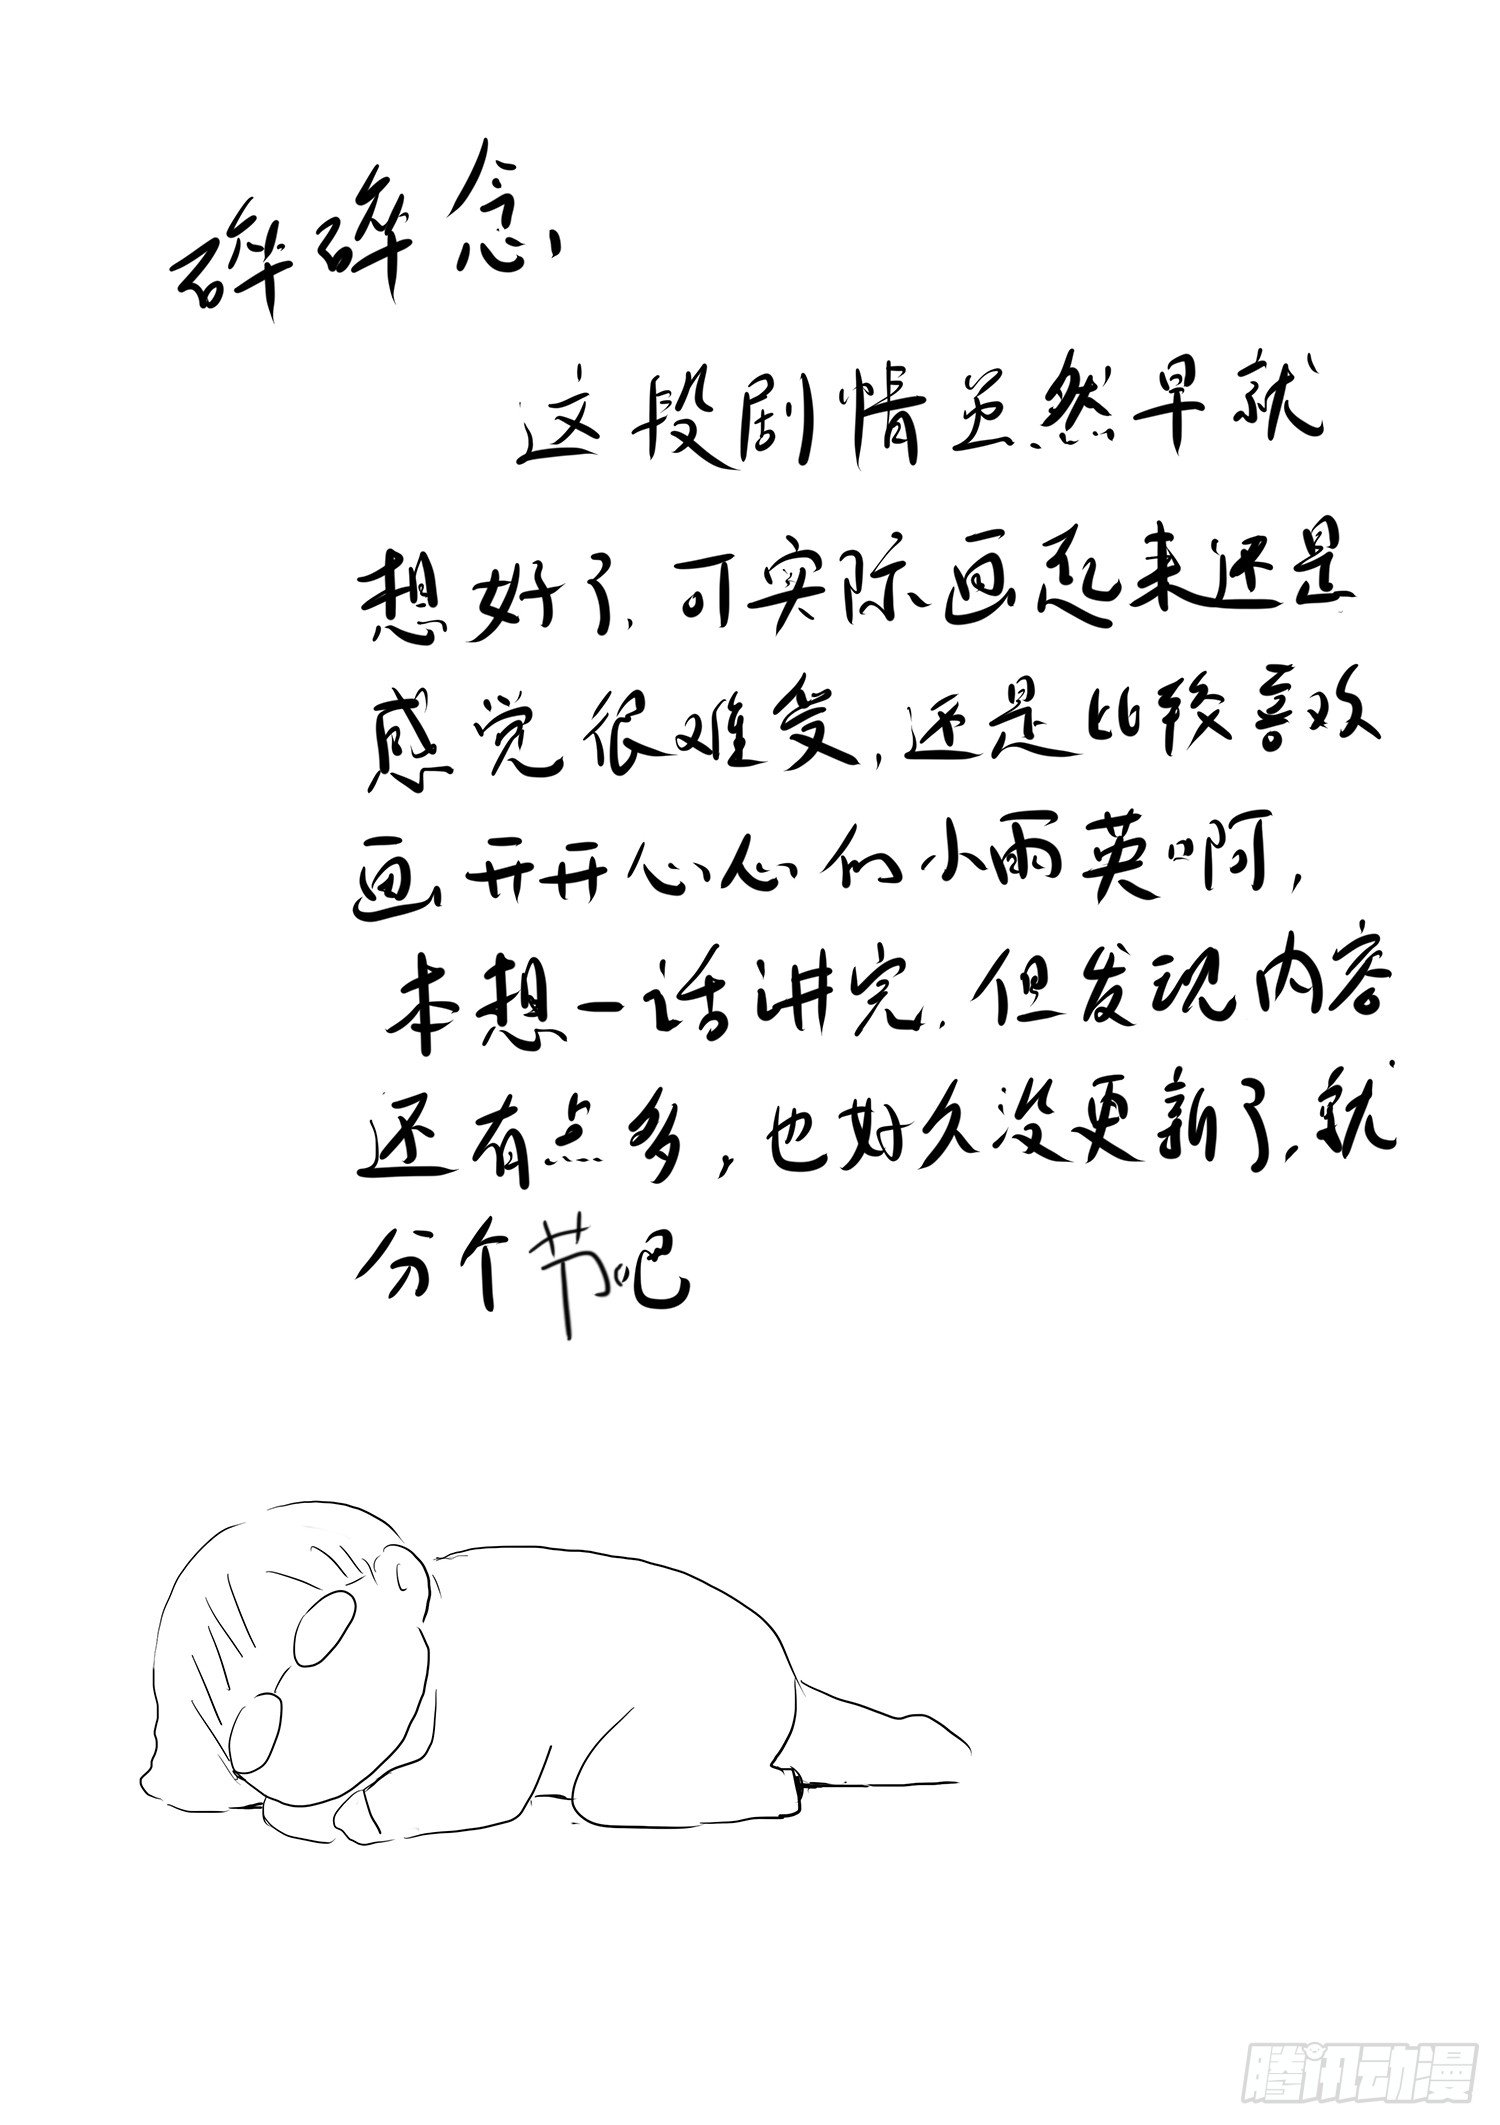 碎碎念、
这段剧情虽然早就
想好了，可实际画起来还是
感觉很难受，还是比较喜欢
画开开心心们小雨英啊，
本想一话讲完，但发现内容
还有点多，也好久没更新了，就
分个节吧
腾讯动漫